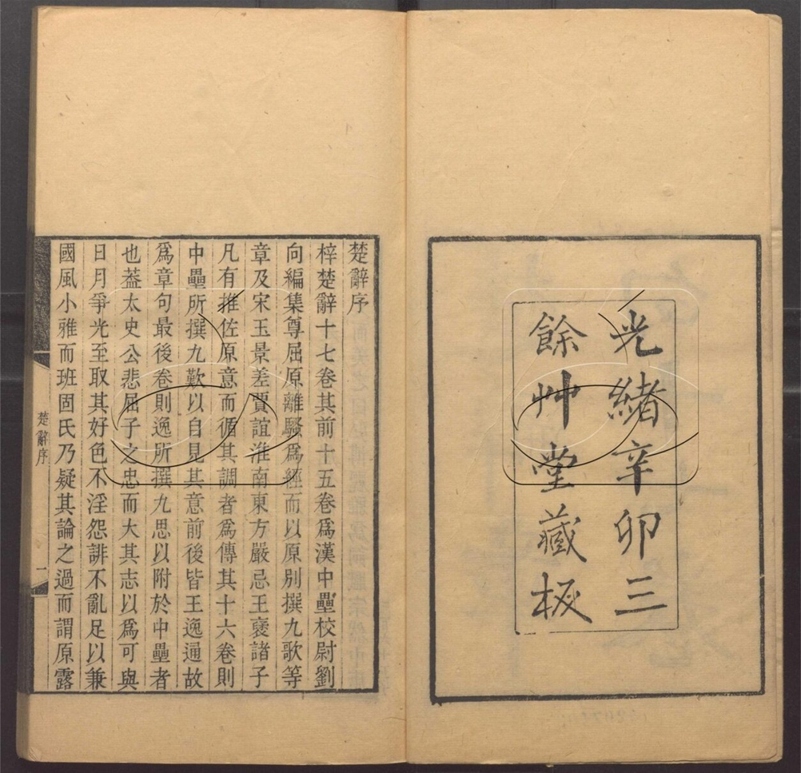 光緒辛卯三
餘艸堂藏板
楚辭序
梓楚辭十七卷其前十五卷爲漢中壘校尉劉
向編集尊屈原離騷爲經而以原別撰九歌等
章及宋玉景差賈誼淮南東方嚴忌王襃諸子
凡有推佐原意而循其調者爲傳其十六卷則
中壘所撰九歎以自見其意前後皆王逸通故
爲章句最後卷則逸所撰九思以附於中壘者
也葢太史公悲屈子之忠而大其志以爲可與
日月爭光至取其好色不淫怨誹不亂足以兼
國風小雅而班固氏乃疑其論之過而謂原露
楚辭序
一